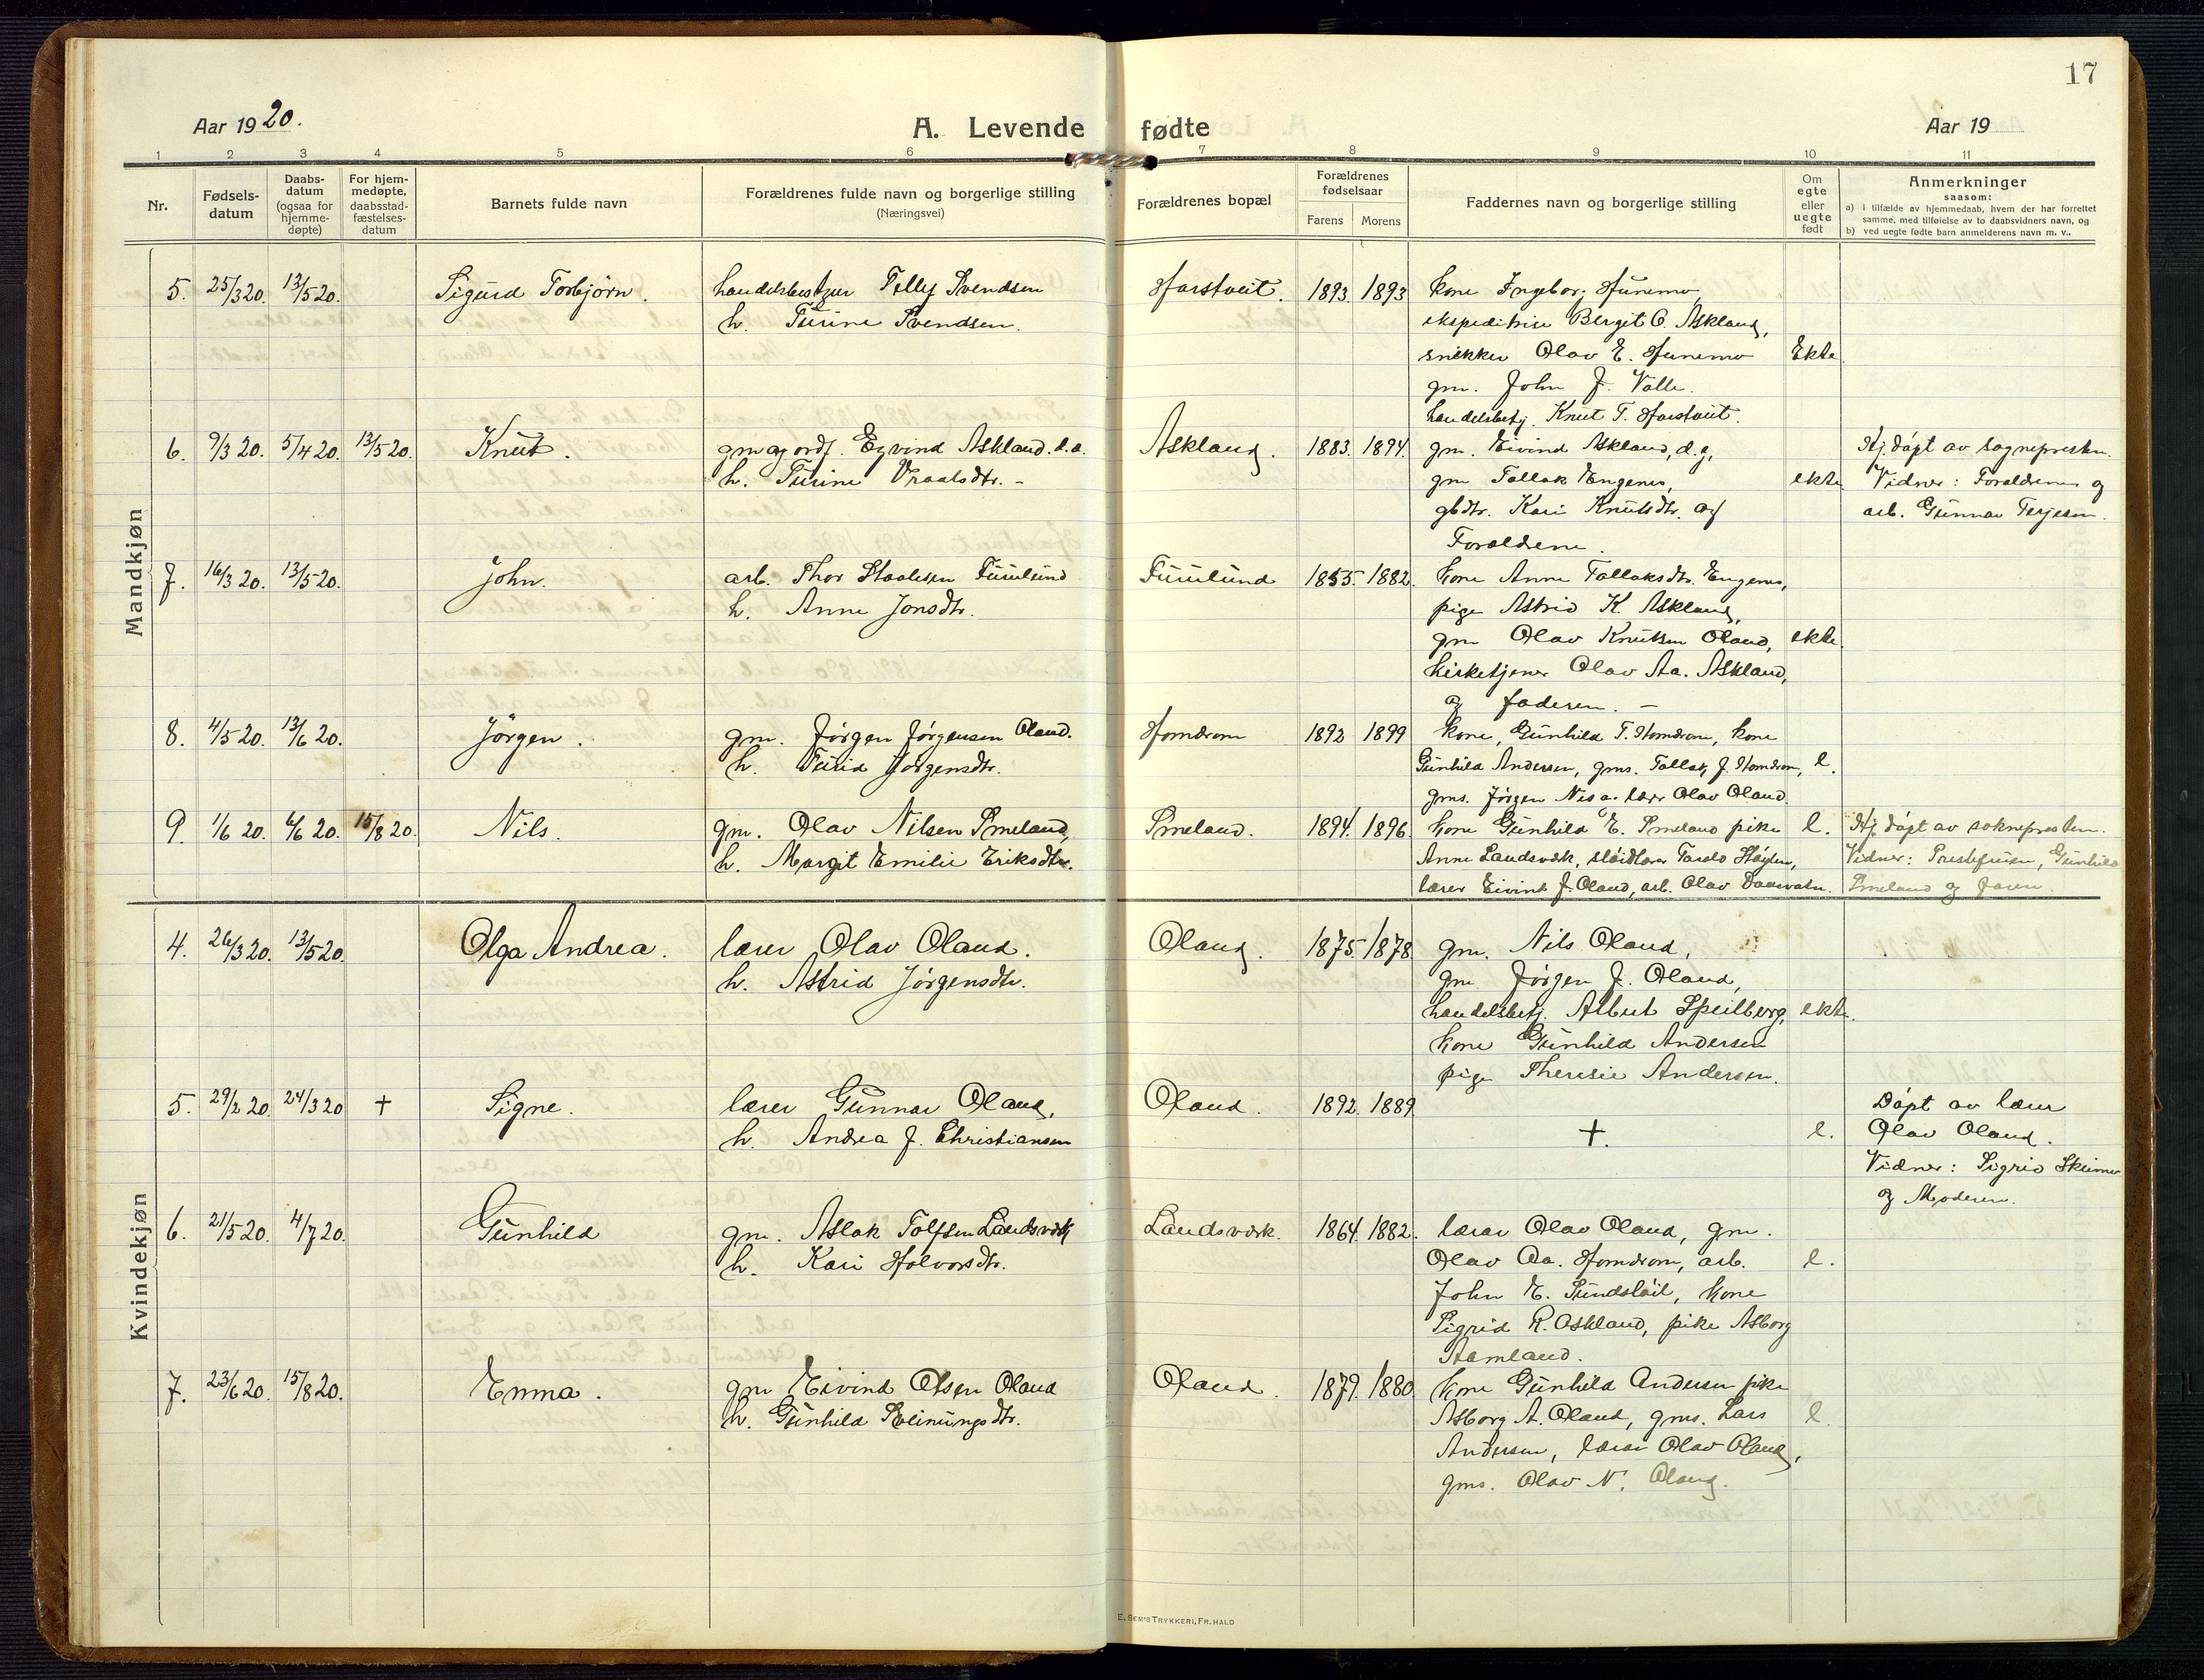 17
Aar 1920.
A. Levende fødte
Aar 19
1 2 3 4 5 6 7 8 9 10 11
Nr.
Fødsels-
datum
Daabs-
datum
(ogsaa for
hjemme-
døpte)
For hjem-
medøpte,
daabsstad-
fæstelses-
datum
Barnets fulde navn
Forældrenes fulde navn og borgerlige stilling
(Næringsvei)
Forældrenes bopæl
Forældrenes
fødselsaar
Farens Morens
Faddernes navn og borgerlige stilling
Om
egte
eller
uegte
født
Anmerkninger
saasom:
a) i tilfælde av hjemmedaab, hvem der har forrettet
samme, med tilføielse av to daabsvidners navn, og
b) ved uegte fødte barn anmelderens navn m. v..
Mandkjøn
5. 25/3 20. 13/5 20. Sigurd Torbjørn.
Svendsen
h. Turine Svendsen.
Harstveit. 1893 1893
kone Ingeborg Hunemo,
ekspeditrise Bergit O. Askland,
snekker Olav E. Hunemo Ekte
gm. John J. Valle.
handelsbetj. Knut T. Harstveit.
6. 9/3 20. 5/4 20. 13/5 20. Knut.
gm og ordf. Eyvind Askland. d.a.
h. Turine Vraalsdtr. -
Askland. 1883. 1894.
gm. Eivind Askland, d.y,
gm Tallak Engenes, ekte
gbdtr. Kari Knutsdtr. og
Foraldrene.
Hj. døpt av sognepresten.
Vidner: Foraldrene og
arb. Gunnar Terjesen.
7. 16/3 20. 13/5 20. John.
arb. Thor Staalesen Furulund
h. Anne Jonsdtr.
Furulund 1855. 1882.
kone Anne Tallaksdtr. Engenes,
pige Astrid K. Askland,
gm Olav Knutsen Oland, ekte.
kirketjener Olav Aa. Askland,
og faderen. -
8. 4/5 20. 13/6 20. Jørgen.
gm. Jørgen Jørgensen Oland.
h. Turid Jørgensdtr.
Homdrom 1892 1899
kone, Gunhild T. Homdrom, kone
Gunhild Andersen, gms. Tallak J. Homdrom, e.
gms. Jørgen Olav Oland.
9. 1/6 20. 6/6 20. 15/8 20. Nils.
gm. Olav Nilsen Smeland,
h. Margit Emilie Eriksdtr.
Smeland. 1894. 1896.
kone Gunhild E. Smeland pike e.
Anne Landsverk,
lærer Eivind J. Oland, arb. Olav
Hj. døpt av soknepresten.
Vidner: Prestefruen, Gunhild
Smeland og faren.
Kvindekjøn
4. 26/3 20. 13/5 20. Olga Andrea.
lærer Olav Oland.
h. Astrid Jørgensdtr.
Oland. 1875. 1878.
gm. Nils Oland,
gm Jørgen J. Oland,
handelsbetj. Albert Speilberg, ekte.
kone Gunhild Andersen
pige Theresie Andersen.
5. 29/2 20. 24/3 20 † Signe.
lærer Gunnar Oland,
h. Andrea J. Christiansen
Oland. 1892. 1889.
†. e.
Døpt av lærer
Olav Oland.
Vidner: Sigrid Skeimo
og Moderen.
6. 21/5 20. 4/7 20. Gunhild
gm. Aslak Tolfsen Landsverk
h. Kari Halvorsdtr.
Landsverk. 1864. 1882.
lærer Olav Oland, gm.
Olav Aa. Homdrom, arb. e.
John E. Sundsløil, kone
Sigrid R. Askland, pike Asborg
Aamland.
7. 23/6 20. 15/8 20. Emma.
gm Eivind Olsen Oland
h. Gunhild
Oland. 1879. 1880.
kone Gunhild Andersen pike
Asborg A. Oland, gms. Lars e.
Andersen, lærer Olav Oland,
gms. Olav N. Oland.
E. SEM'S TRYKKERI, FR. HALD